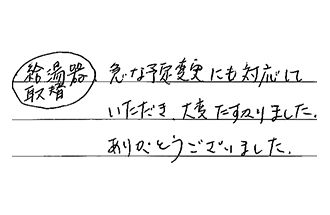 給湯器
取替
急な予定変更にも対応して
いただき、大変たすかりました。
ありがとうございました。